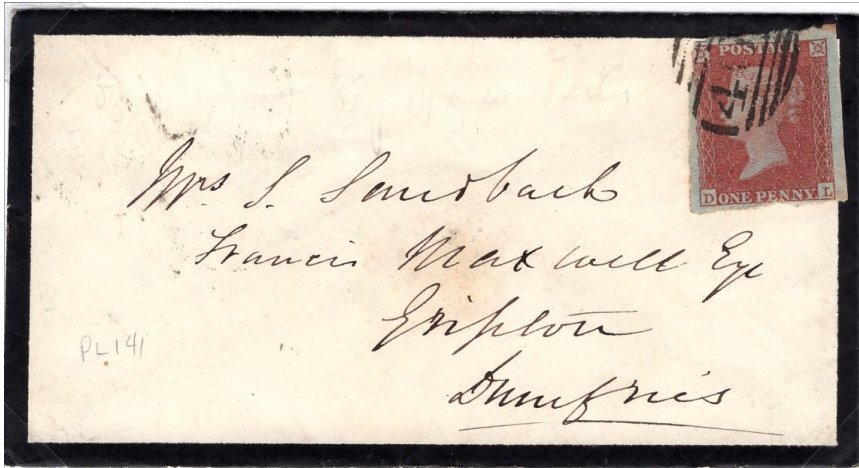 POSTAGE
D ONE PENNY. L
Mrs. S. Sandbach
Francis Maxwell Esq
Gribton
Dumfries
PL 141